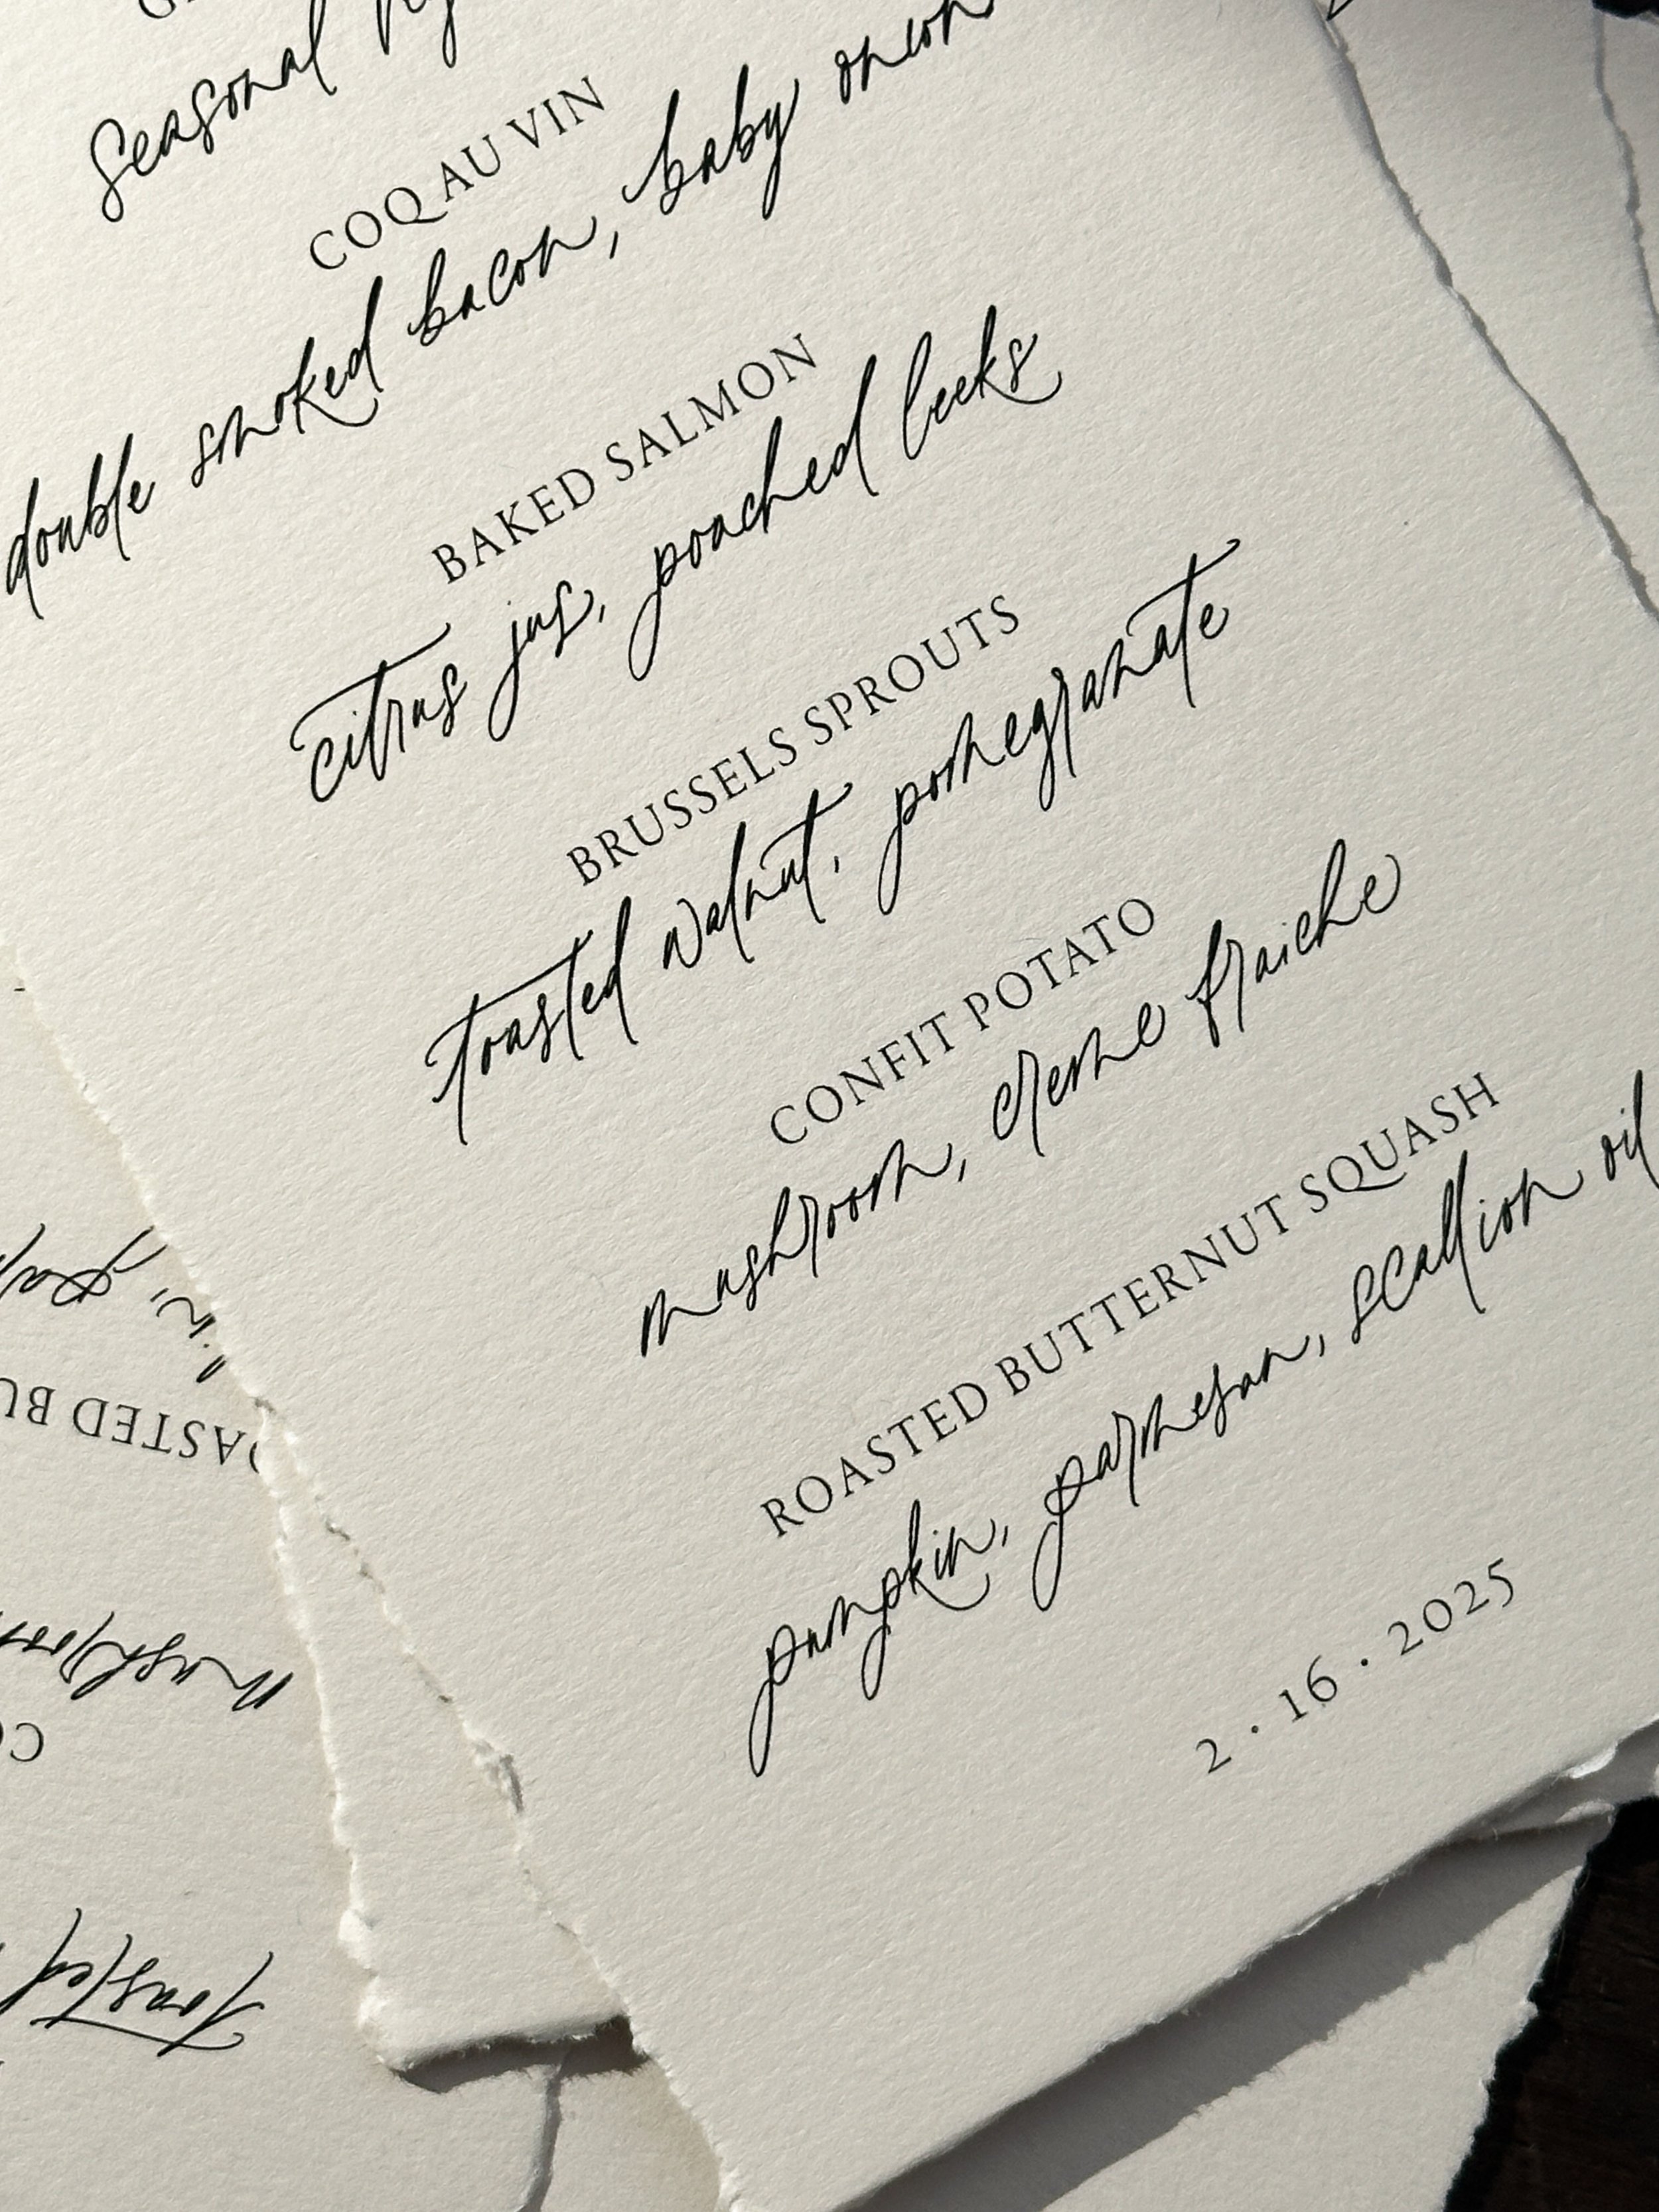 seasonal
COQ AU VIN
double smoked bacon, baby onion
BAKED SALMON
citrus jus, poached leeks
BRUSSELS SPROUTS
toasted walnut, pomegranate
CONFIT POTATO
mushroom, creme fraiche
ROASTED BUTTERNUT SQUASH
pumpkin, parmesan, scallion oil
2 · 16 · 2025
OASTED BU
mushroom
CO
toasted